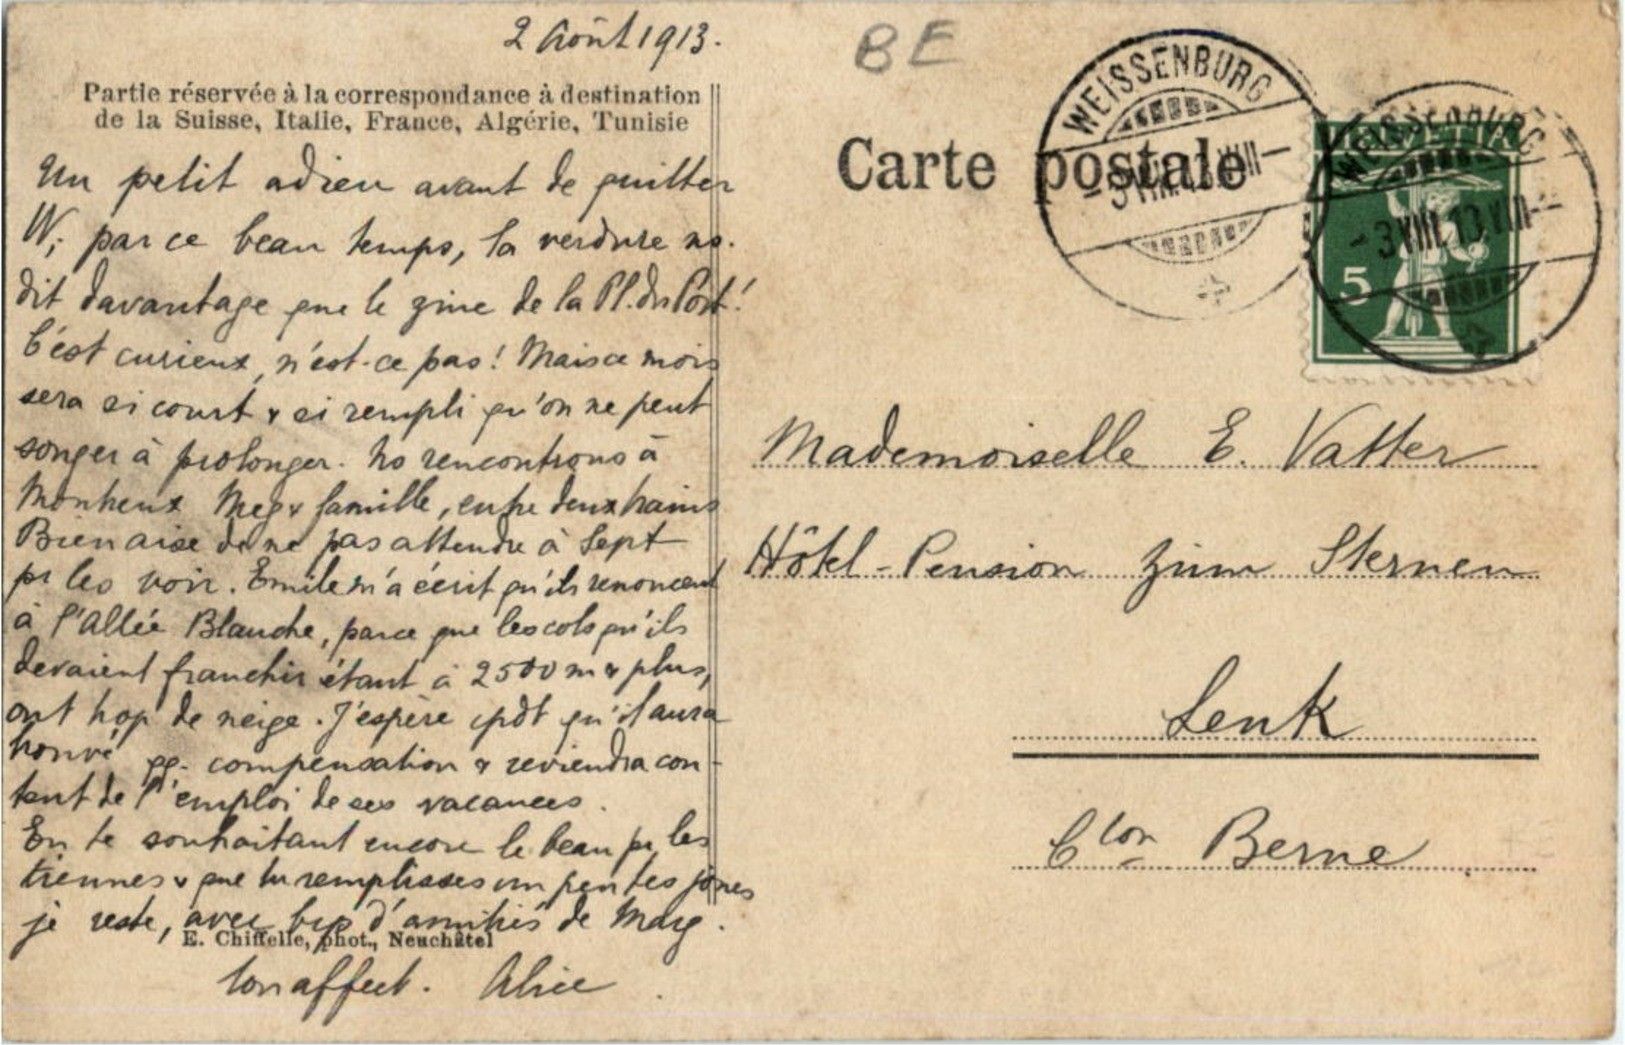 2 Août 1913.
BE
Partie réservée à la correspondance à destination
de la Suisse, Italie, France, Algérie, Tunisie
Carte postale
WEISSENBURG
-3 VIII.13.VIII-
HELVETIA
5
WEISSENBURG
-3 VIII.13.VIII-
Un petit adieu avant de quitter
W; par ce beau temps, la verdure ns.
dit davantage que le zinc de la Pl. du Port!
C'est curieux, n'est-ce pas! Mais ce mois
sera si court & si rempli qu'on ne peut
songer à prolonger. Ns rencontrons à
Montreux Meg & famille, entre deux trains
Bien aise de ne pas attendre à Sept
pr les voir. Emile m'a écrit qu'ils renoncent
à l'Allée Blanche, parce que les cols qu'ils
devaient franchir étant à 2500 m & plus,
ont trop de neige. J'espère cpdt qu'il aura
trouvé qq. compensation & reviendra con-
tent de l'emploi de ses vacances.
En te souhaitant encore le beau pr les
tiennes & que tu remplisses un peu tes joues
je reste, avec bcp d'amitiés de Marg.
E. Chiffelle, phot., Neuchâtel
ton affect. Alice
Mademoiselle E. Vatter
Hôtel-Pension zum Sternen
Lenk
Cton Berne